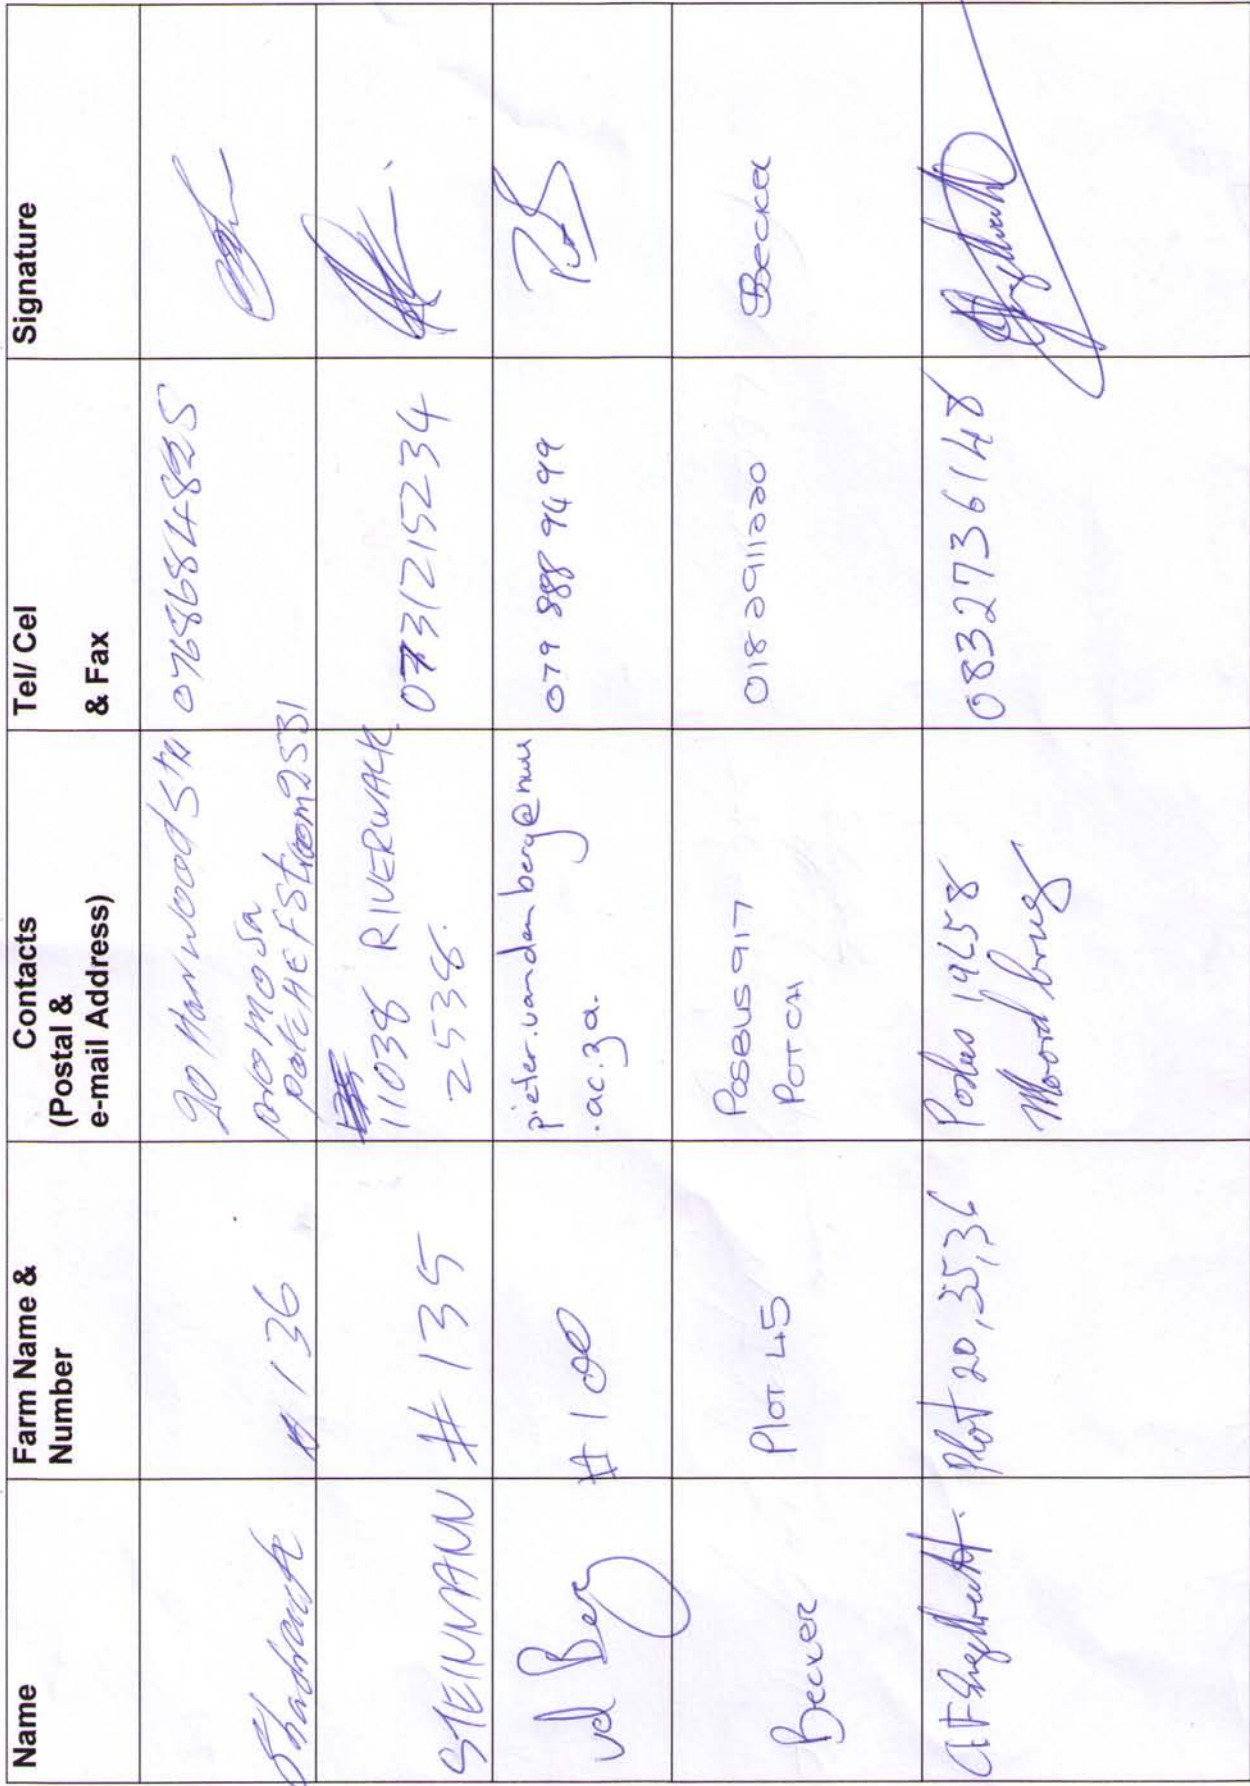 Name
Farm Name &
Number
Contacts
(Postal &
e-mail Address)
Tel/ Cel
& Fax
Signature
Shadrack
# 136
20 Harwood str
promosa
potCHEFStroom 2531
0768684825
STEINMANN
# 135
11038 RIVERWALK
2538.
0731215234
vd Berg
# 100
pieter.vandenberg@nwu
.ac.za.
079 888 9499
Becker
Plot 45
Posbus 917
POTCH
018 2911220
Becker
Plot 20, 35, 36
Posbus 19658
Noordbrug
0832736148